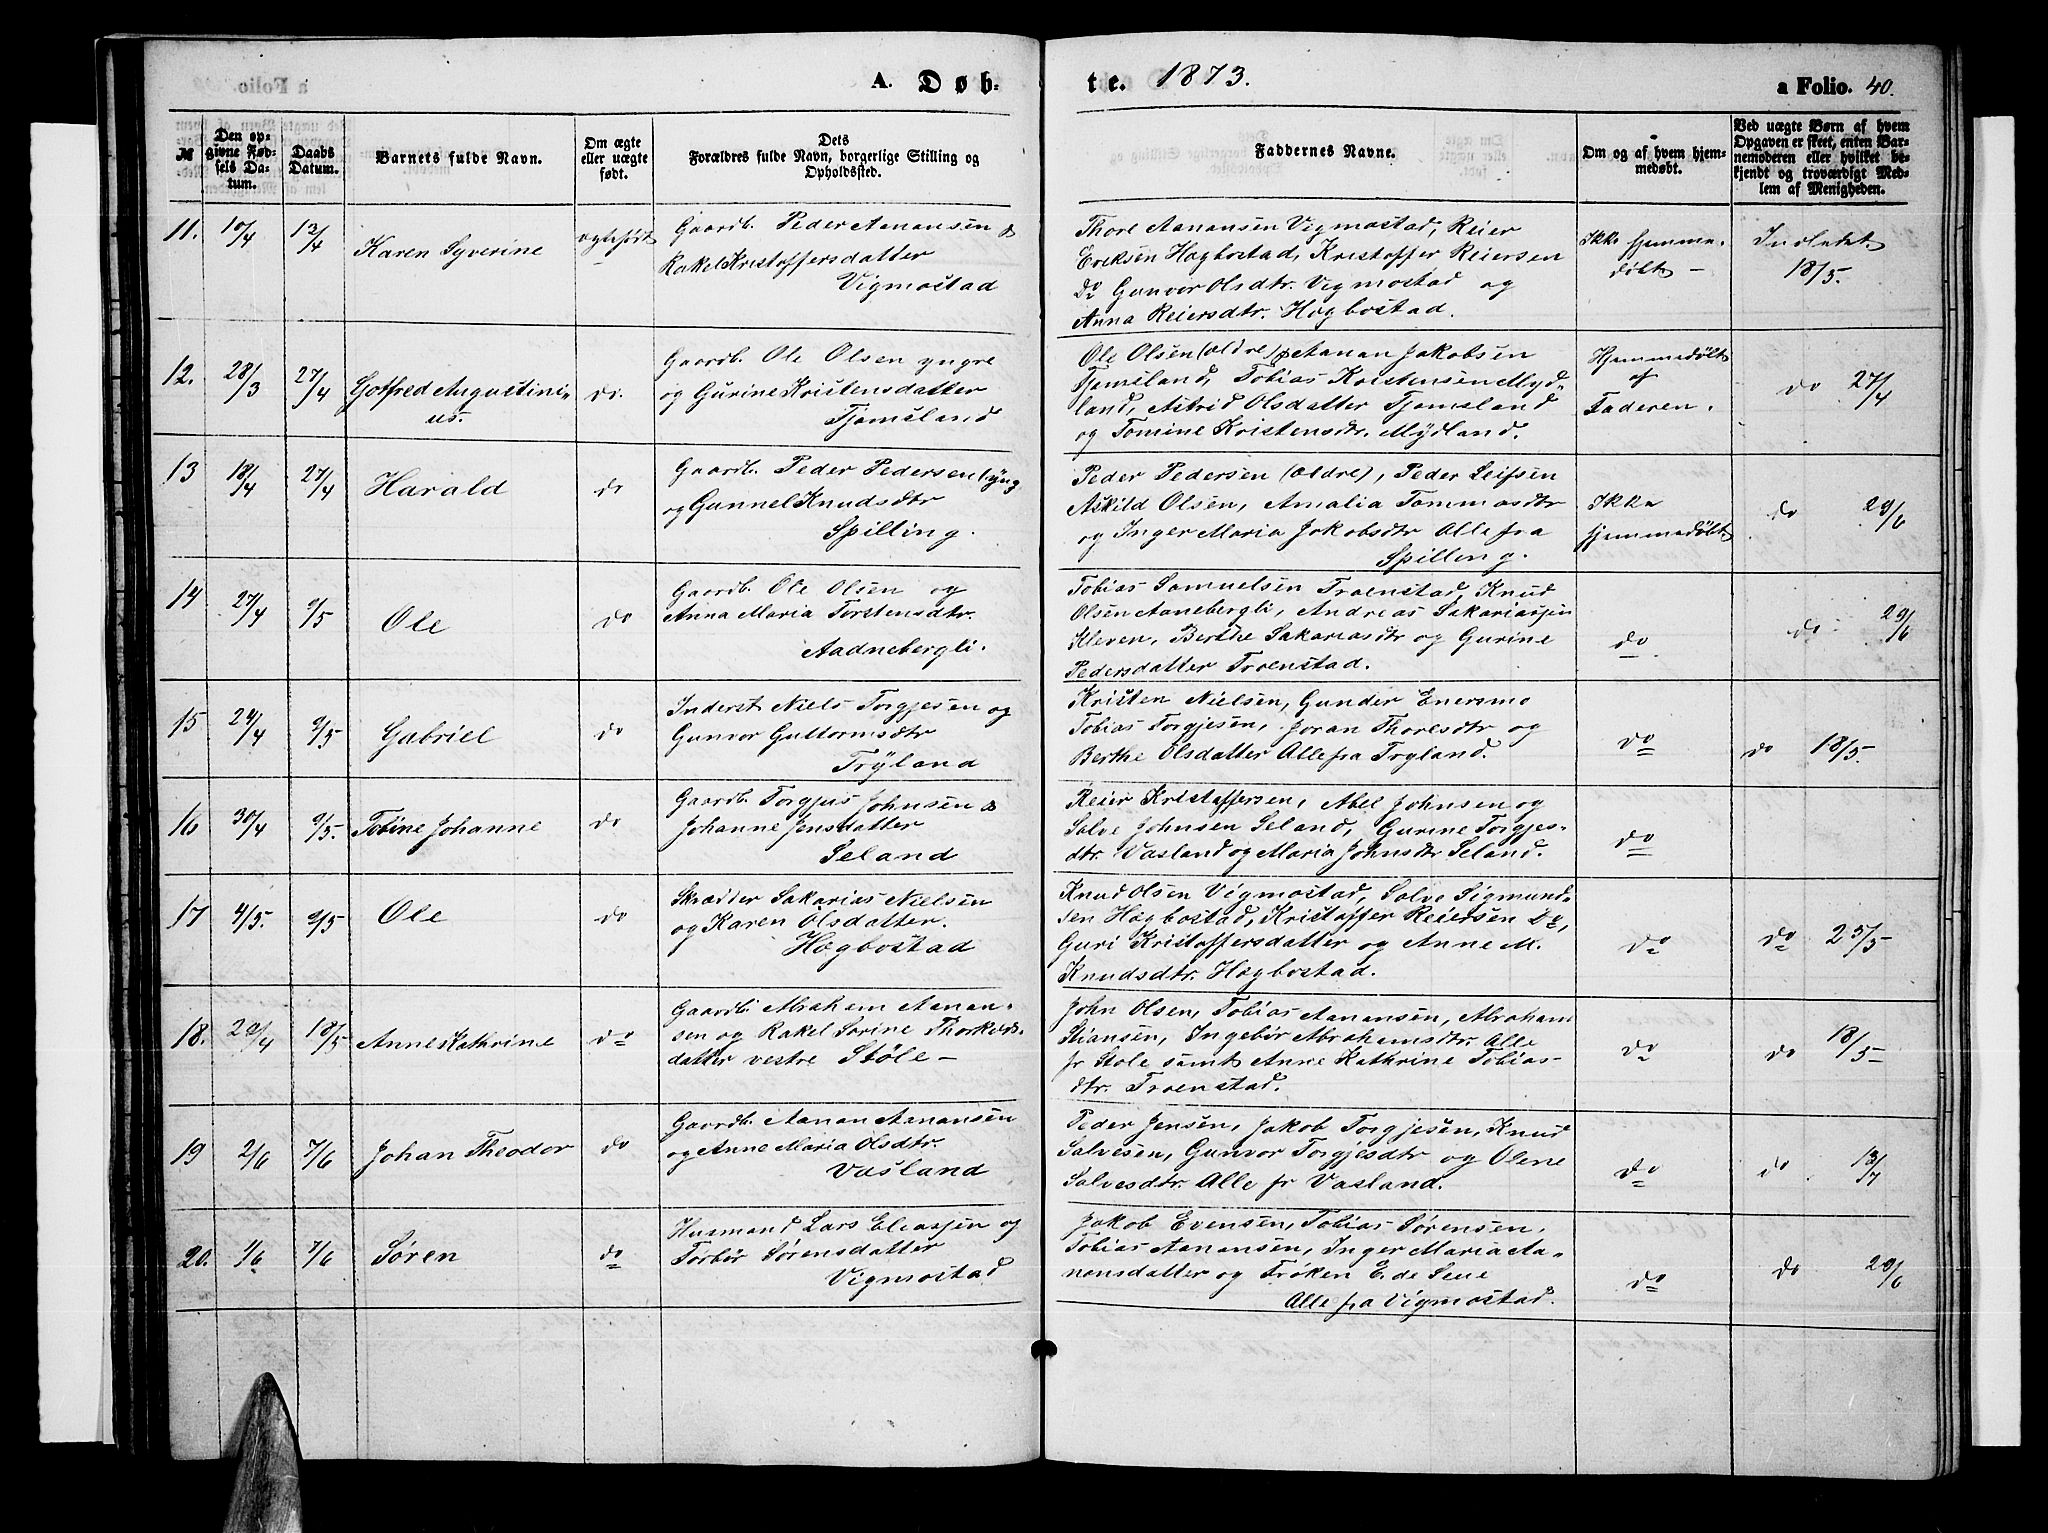 A. Døb-
te. 1873.
a Folio. 40.
№
Den op-
givne Fød-
sels Da-
tum.
Daabs
Datum.
Barnets fulde Navn.
Om ægte
eller uægte
født.
Dets
Forældres fulde Navn, borgerlige Stilling og
Opholdssted.
Faddernes Navne.
Om og af hvem hjem-
medøbt.
Ved uægte Børn af hvem
Opgaven er skeet, enten Bar-
nemoderen eller hvilket be-
kjendt og troværdigt Med-
lem af Menigheden.
11. 10/4 13/4 Karen Syverine ægtefødt
Gaardb. Peder Aanansen &
Rakel Kristoffersdatter
Vigmostad
Thore Aanansen Vigmostad, Reier
Eriksen Høgbostad, Kristoffer Reiersen
do Gunvor Olsdtr. Vigmostad og
Anna Reiersdtr. Høgbostad.
Ikke hjemme-
døbt -
Indledet
18/5.
12. 28/3 27/4 Gotfred Augustini-
us. do.
Gaardb. Ole Olsen yngre
og Gurine Kristensdatter
Tjomsland
Ole Olsen (ældre) Aanan Jakobsen
Tjomsland, Tobias Kristensen Myd-
land, Astrid Olsdatter Tjomsland
og Tomine Kristensdtr. Mydland.
Hjemmedøbt
af
Faderen.
do 27/4
13 18/4 27/4 Harald do
Gaardb. Peder Pedersen (yng
og Gunnel Knudsdtr
Spilling.
Peder Pedersen (ældre), Peder Leifsen
Askild Olsen, Amalia Tommasdtr
og Inger Maria Jakobsdtr Alle fra
Spilling.
Ikke
hjemmedøbt
do 29/6
14 27/4 9/5 Ole do
Gaardb. Ole Olsen og
Anna Maria Torstensdtr.
Aadnebergli.
Tobias Samuelsen Troenstad, Knud
Olsen Aanebergli, Andreas Sakariassen
Kleven, Berthe Sakariasdtr og Gurine
Pedersdatter Troenstad.
do
do 29/6
15 24/4 9/5 Gabriel do
Inderst Niels Torgjesen og
Gunvor Guttormsdtr
Tryland
Kristen Nielsen, Gunder Enersmo
Tobias Torgjesen, Joran Thoresdtr og
Berthe Olsdatter Alle fra Tryland.
do
do 18/5.
16 30/4 9/5. Tobine Johanne do
Gaardb. Torgjus Johnsen &
Johanne Jensdatter
Seland
Reier Kristoffersen, Abel Johnsen og
Salve Johnsen Seland, Gurine Torgjes-
dtr. Vasland og Maria Johnsdtr Seland.
do
17 4/5. 9/5 Ole do
Skrædder Sakarias Nielsen
og Karen Olsdatter.
Høgbostad
Knud Olsen Vigmostad, Salve Sigmund-
sen Høgbostad, Kristoffer Reiersen do,
Guri Kristoffersdatter og Anne M.
Knudsdtr. Høgbostad.
do
do 25/5
18. 29/4 18/5 Anne Kathrine do
Gaardb. Abraham Aanan-
sen og Rakel Sorine Thorkilds-
datter vestre Støle -
John Olsen, Tobias Aanansen, Abraham
Stiansen, Ingebør Abrahamsdtr. Alle
fr Støle samt Anne Kathrine Tobias-
dtr. Troenstad.
do
do 18/5
19 2/6 7/6 Johan Theodor do
Gaardb. Aanan Aanansen
og Anne Maria Olsdtr.
Vasland
Peder Jensen, Jakob Torgjesen, Knud
Salvesen, Gunvor Torgjesdtr og Olene
Salvesdtr. Alle fr Vasland.
do
do 13/7
20. 1/6 7/6 Søren do
Husmand Lars Eliassen og
Torbør Sørensdatter
Vigmostad
Jakob Evensen, Tobias Sørensen,
Tobias Aanansen, Inger Maria Aa-
nansdatter og Frøken E. de Seue
Alle fra Vigmostad.
do
do 29/6